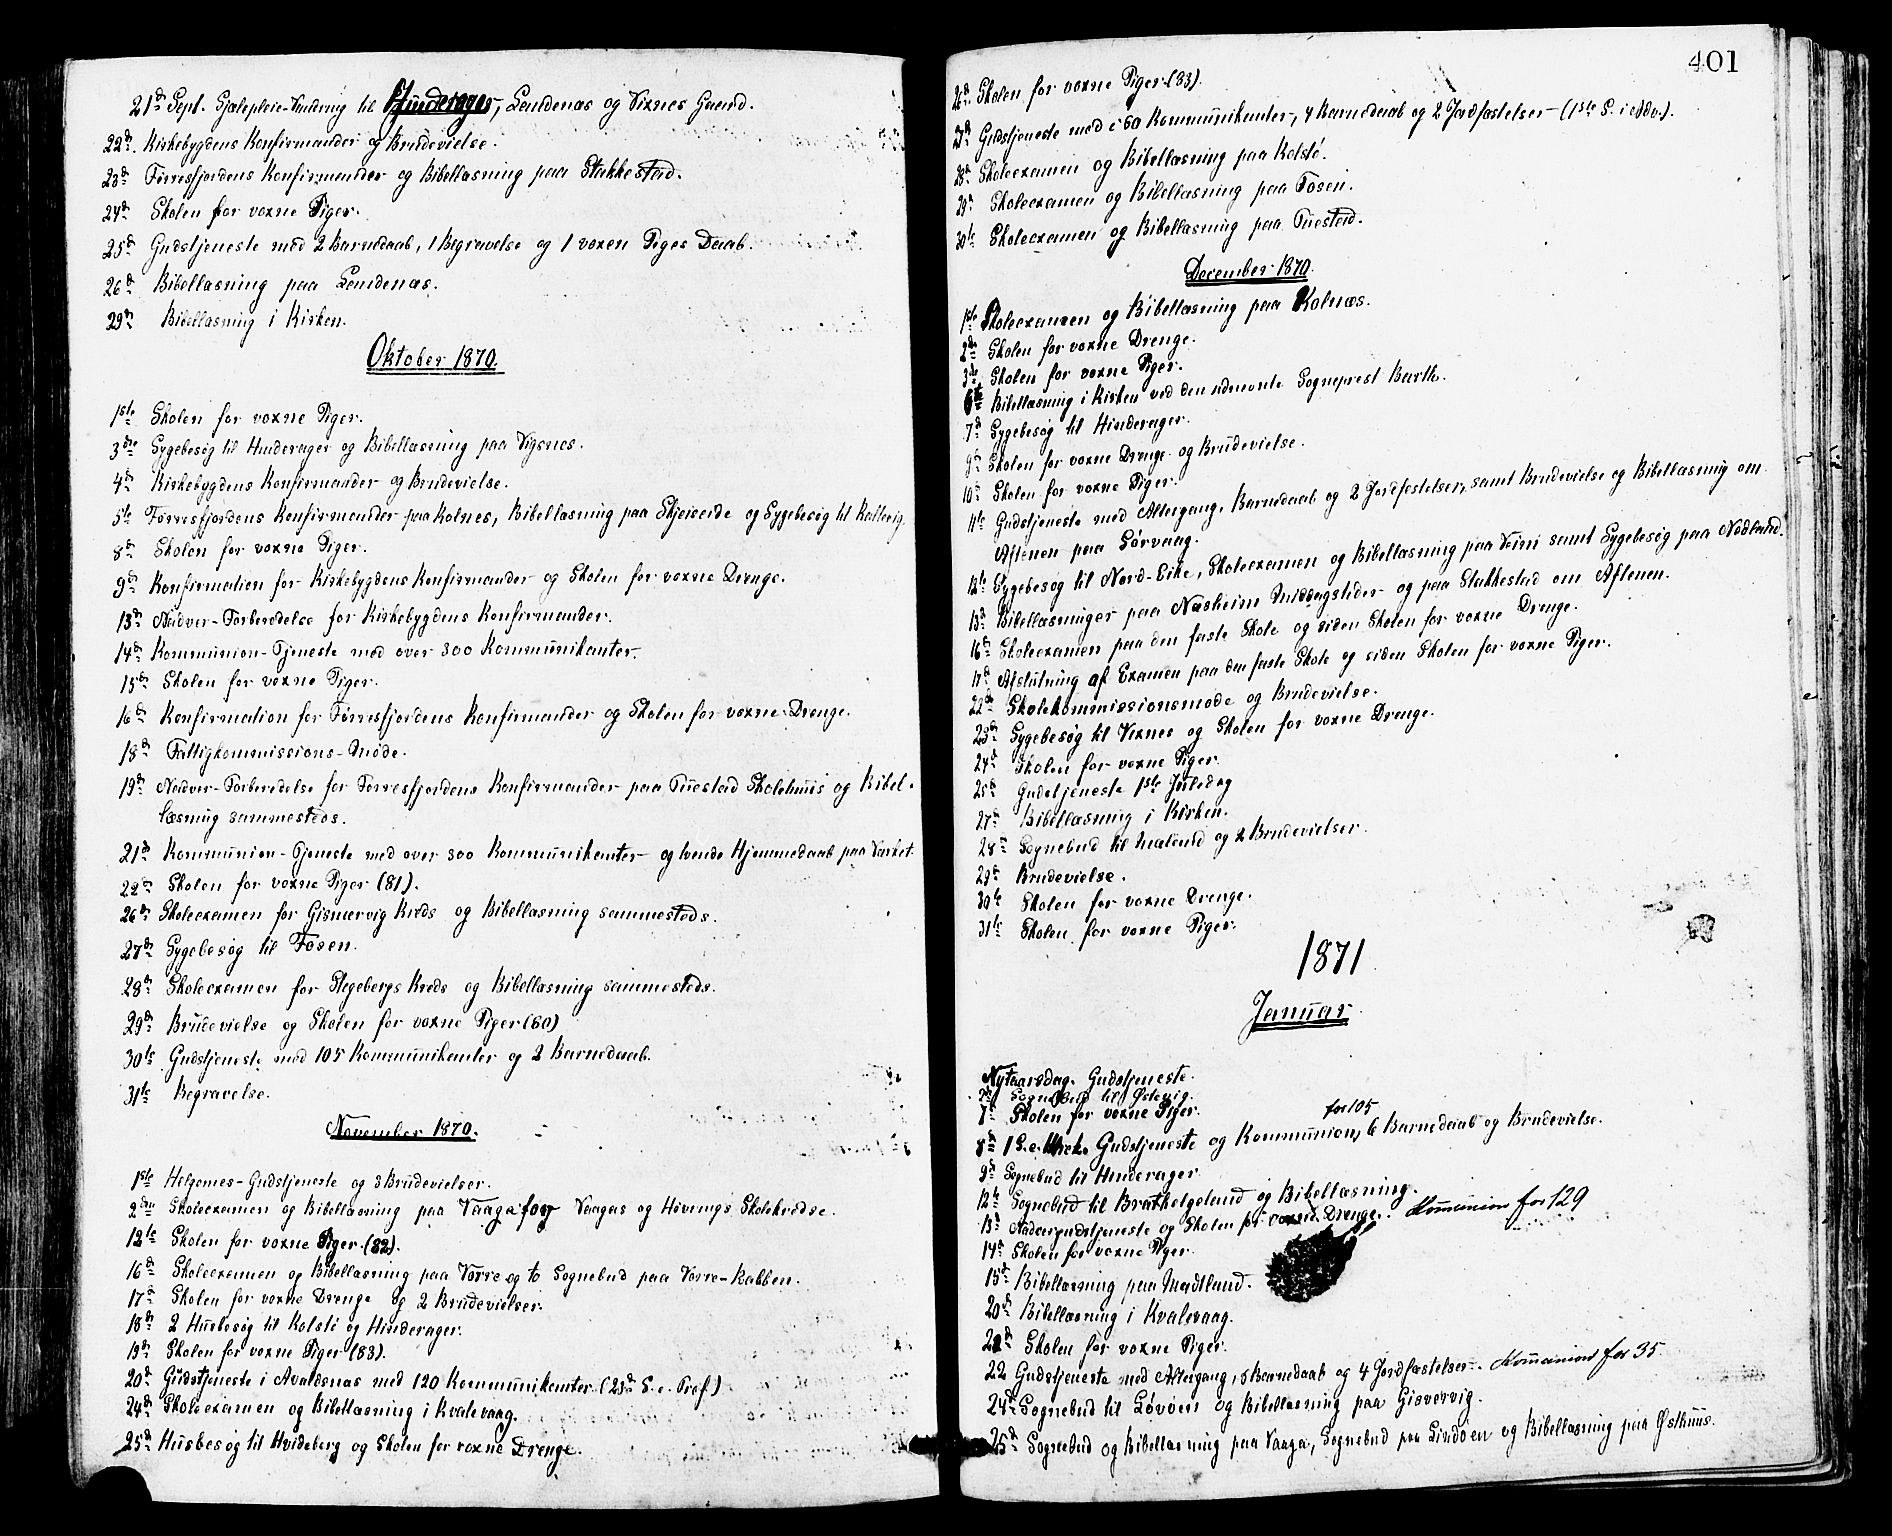 21de Sept. Sjælepleie-Vandring til Hinderager, Lendenæs og Vixnes Gaard.
22de Kirkebygdens Konfirmander og Brudevielse.
23de Førresfjordens Konfirmander og Bibellæsning paa Stakkestad.
24de Skolen for voxne Piger.
25de Gudstjeneste med 2 Barnedaab, 1 Begravelse og 1 voxen Piges Daab.
26de Bibellæsning paa Lendenæs.
29de Bibellæsning i Kirken.
Oktober 1870.
1ste Skolen for voxne Piger.
3die Sygebesøg til Hinderager og Bibellæsning paa Vigsnæs.
4de Kirkebygdens Konfirmander og Brudevielse.
5te Førresfjordens Konfirmander paa Kolnes, Bibellæsning paa Skjeiseide og Sygebesøg til Kallevig.
8de Skolen for voxne Piger.
9de Konfirmation for Kirkebygdens Konfirmander og Skolen for voxne Drenge.
13de Nadver-Forberedelse for Kirkebygdens Konfirmander.
14de Kommunion-Tjeneste med over 300 Kommunikanter.
15de Skolen for voxne Piger.
16de Konfirmation for Førresfjordens Konfirmander og Skolen for voxne Drenge.
18de Fattigkommissions-Møde.
19de Nadver-Forberedelse for Førresfjordens Konfirmander paa Tuestad Skolehuus og Bibel-
læsning sammesteds.
21de Kommunion-Tjeneste med over 300 Kommunikanter og tvende Hjemmedaab paa Værket.
22de Skolen for voxne Piger (81).
26de Skoleexamen for Gismervig Kreds og Bibellæsning sammesteds.
27de Sygebesøg til Fosen.
28de Skoleexamen for Stegebergs Kreds og Bibellæsning sammesteds.
29de Brudevielse og Skolen for voxne Piger (80)
30te Gudstjeneste med 105 Kommunikanter og 2 Barnedaab.
31te Begravelse.
November 1870.
1ste Helgemes-Gudstjeneste og 3 Brudevielser.
2den Skoleexamen og Bibellæsning paa Vaaga for Vaagas og Hövings Skolekredse.
12te Skolen for voxne Piger (82).
16de Skoleexamen og Bibellæsning paa Vorre og to Sognebud paa Vorre-Rabben.
17de Skolen for voxne Drenge og 2 Brudevielser.
18de 2 Husbesøg til Kolstø og Hinderager.
19de Skolen for voxne Piger (83).
20de Gudstjeneste i Avaldsnæs med 120 Kommunikanter (23de S. e. Pref.)
24de Skoleexamen og Bibellæsning i Kvalevaag.
25de Husbesøg til Hvideberg og Skolen for voxne Drenge.
401
26de Skolen for voxne Piger (83).
27de Gudstjeneste med c 60 Kommunikanter, 4 Barnedaab og 2 Jordfæstelser (1ste S. i Adv.).
28de Skoleexamen og Bibellæsning paa Kolstø.
29de Skoleexamen og Bibellæsning paa Fosen.
30te Skoleexamen og Bibellæsning paa Tuestad.
December 1870.
1ste Skoleexamen og Bibellæsning paa Kolnæs.
2den Skolen for voxne Drenge.
3die Skolen for voxne Piger.
6te Bibellæsning i Kirken ved den udnævnte Sogneprest Barth.
7de Sygebesøg til Hinderager.
9de Skolen for voxne Drenge og Brudevielse.
10de Skolen for voxne Piger.
11te Gudstjeneste med Altergang, Barnedaab og 2 Jordfæstelser, samt Brudevielse og Bibellæsning om
Aftenen paa Sørvaag.
12te Sygebesøg til Nord-Eike, Skoleexamen og Bibellæsning paa Veim samt Sygebesøg paa Nødland.
13de Bibellæsninger paa Næsheim Middagstider og paa Stakkestad om Aftenen.
16de Skoleexamen paa den faste Skole og siden Skolen for voxne Drenge.
17de Afslutning af Examen paa den faste Skole og siden Skolen for voxne Piger.
22de Skolekommissionsmøde og Brudevielse.
23de Sygebesøg til Vixnes og Skolen for voxne Drenge.
24de Skolen for voxne Piger.
25de Gudstjeneste 1ste Juledag
27de Bibellæsning i Kirken.
28de Sognebud til Mæland og 2 Brudevielser.
29de Brudevielse.
30te Skolen for voxne Drenge.
31te Skolen for voxne Piger.
1871
Januar.
Nytaarsdag. Gudstjeneste.
2den Sognebud til Ødevig.
7de Skolen for voxne Piger.
8de 1 S. e. H3rek. Gudstjeneste og Kommunion for 105, 6 Barnedaab og Brudevielse.
9de Sognebud til Hinderager.
12te Sognebud til Brathelgeland og Bibellæsning.
13de Nadvergudstjeneste og Skolen for voxne Drenge. Kommunion for 129
14de Skolen for voxne Piger.
15de Bibellæsning paa Madtland.
20de Bibellæsning i Kvalevaag.
21de Skolen for voxne Piger.
22 Gudstjeneste med Altergang, 5 Barnedaab og 4 Jordfæstelser. Kommunion for 35
24de Sognebud til Løvøen og Bibellæsning paa Gisvervig.
25de Sognebud og Bibellæsning paa Vaaga, Sognebud paa Lindøen og Bibellæsning paa Østhuus.